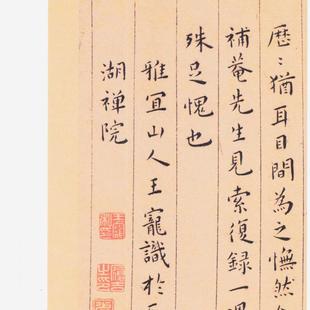 歷〻猶耳目間為之憮然
補菴先生見索復録一
殊足愧也
雅宜山人王寵識於
湖禅院